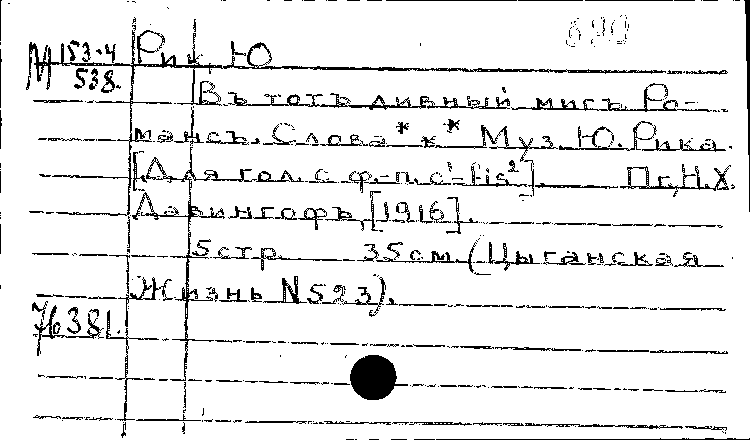 690
М 153-4 Рик, Ю
538.
Въ тотъ дивный мигъ. Ро-
мансъ. Слова *** Муз. Ю. Рика.
[Для гол. с ф.-п. c¹-fis²]. Пг., Н.Х.
Давингофъ, [1916].
5 стр. 35 см. (Цыганская
Жизнь N 523).
76381.